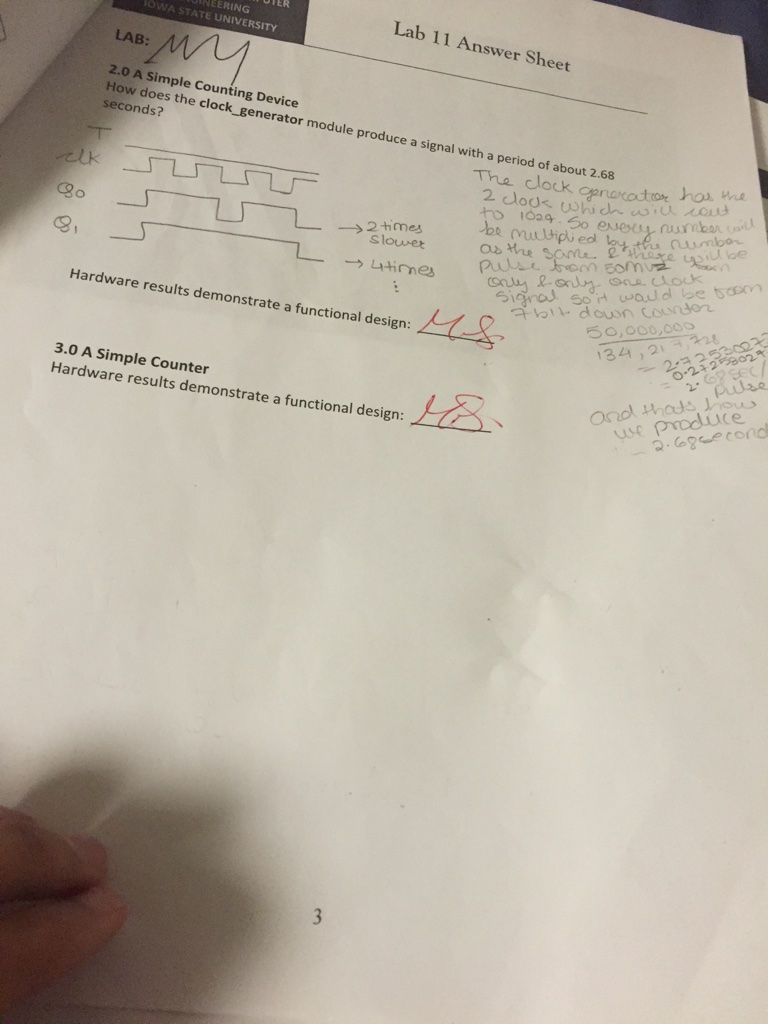 ENGINEERING
IOWA STATE UNIVERSITY
Lab 11 Answer Sheet
LAB:
2.0 A Simple Counting Device
How does the clock_generator module produce a signal with a period of about 2.68
seconds?
T
clk
Q0
Q1
→ 2 times
slower
→ 4 times
⋮
The clock generator has the
2 clock which will cout
to 1024. So every number will
be multiplied by the number
as the same & there will be
pulse from 50MHz
only & only one clock
signal so it would be from
7 bit down counter
50,000,000
134,217,728
= 2.7253027
0.2725302
= 2.68 sec/
pulse
and thats how
we produce
2.68 second
Hardware results demonstrate a functional design: M.S.
3.0 A Simple Counter
Hardware results demonstrate a functional design: M.S.
3